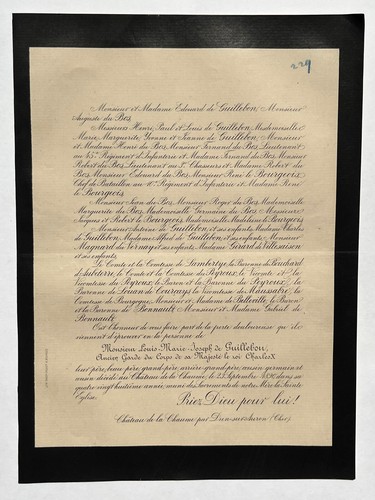 229
Monsieur et Madame Edouard de Guillebon, Monsieur
Auguste du Bos,
Messieurs Henri, Paul et Louis de Guillebon, Mesdemoiselles
Marie, Marguerite, Yvonne et Jeanne de Guillebon, Monsieur
et Madame Henri du Bos, Monsieur Fernand du Bos, Lieutenant
au 45e Régiment d'Infanterie et Madame Fernand du Bos, Monsieur
Robert du Bos, Lieutenant au Chasseurs et Madame Robert du
Bos, Monsieur Edouard du Bos, Monsieur René le Bourgeois,
Chef de Bataillon au Régiment d'Infanterie et Madame René
le Bourgeois,
Monsieur Jean du Bos, Monsieur Roger du Bos, Mademoiselle
Marguerite du Bos, Mademoiselle Germaine du Bos, Messieurs
Jacques et Robert le Bourgeois, Mademoiselle Madeleine le Bourgeois,
Monsieur Antoine de Guillebon, et ses enfants, Madame Charles
de Guillebon, Madame Alfred de Guillebon, et ses enfants, Monsieur
et ses enfants, Madame Girard de
et ses enfants,
Le Comte et la Comtesse de Lambertye, la Baronne de Bouchard
de le Comte et la Comtesse de Peyroux, le Vicomte et la
Vicomtesse de Peyroux, le Baron et la Baronne de Peyroux, la
Baronne de de la Vicomtesse de Maussabré, la
Comtesse de Bourgogne, Monsieur et Madame de Belleville, le Baron
et la Baronne de Bonnault, Monsieur et Madame Gabriel de
Bonnault,
Ont l'honneur de vous faire part de la perte douloureuse qu'ils
viennent d'éprouver en la personne de
Monsieur Louis-Marie-Joseph de Guillebon,
Ancien Garde du Corps de sa Majesté le roi Charles X
leur père, beau-père, grand-père, arrière-grand-père, cousin germain et
cousin décédé au Château de la Chaume, le 23 Septembre 1890 dans sa
quatre-vingt-huitième année, muni des Sacrements de notre Mère la Sainte
Eglise.
Priez Dieu pour lui!
Château de la Chaume, par Dun-sur-Auron (Cher)